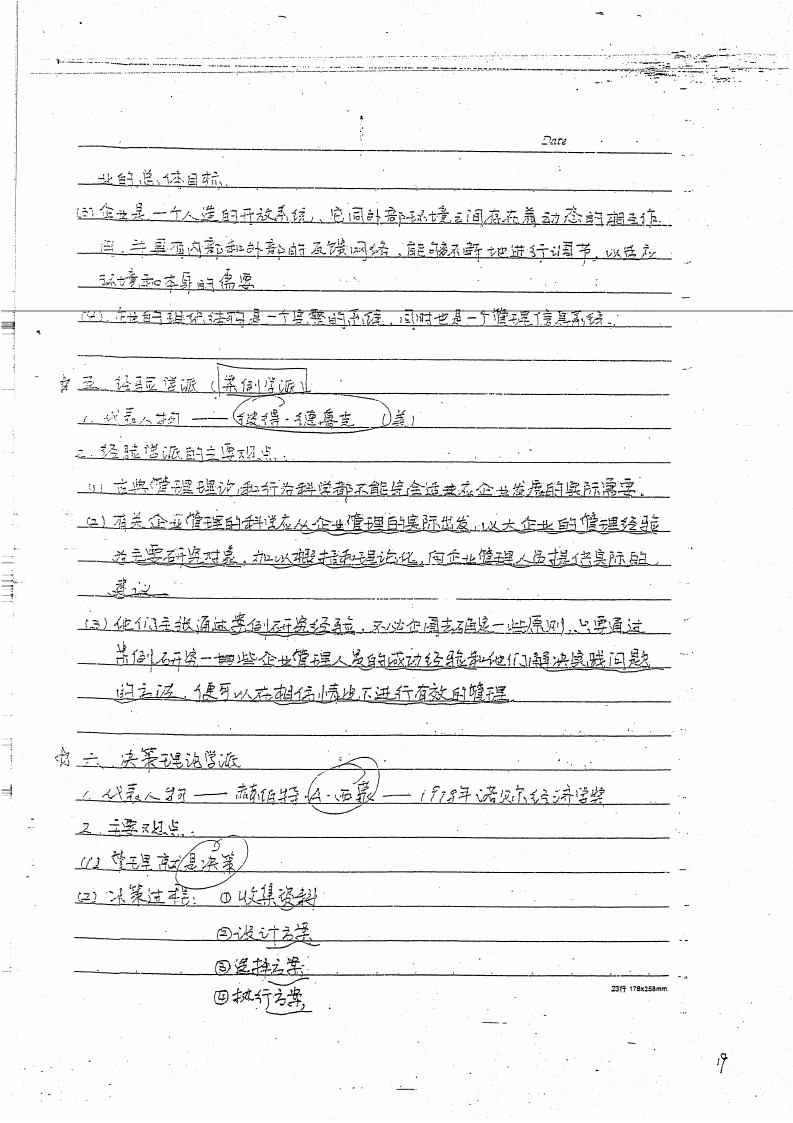 Date
业的总体目标.
(3) 企业是一个人造的开放系统、它同外部环境之间存在着动态的相互作
用、并具有内部和外部的反馈网络,能够不断地进行调节,以适应
环境和本身的需要
(4). 企业的组织结构是一个完整的系统,同时也是一个管理信息系统.
☆ 五. 经验学派 (案例学派)
1. 代表人物 —— 彼得·德鲁克 (美)
2. 经验学派的主要观点.
(1) 古典管理理论和行为科学都不能完全适应企业发展的实际需要.
(2) 有关企业管理的科学应从企业管理的实际出发,以大企业的管理经验
为主要研究对象,加以概括和理论化,向企业管理人员提供实际的
建议
(3) 他们主张通过案例研究经验,不必企图去确定一些原则,只要通过
案例研究一些企业管理人员的成功经验和他们解决实践问题
的方法,便可以在相仿情况下进行有效的管理.
☆ 六、决策理论学派
1. 代表人物 —— 赫伯特·A·西蒙 —— 1978年诺贝尔经济学奖
2. 主要观点.
(1) 管理就是决策
(2) 决策过程: ①收集资料
②设计方案
③选择方案
④执行方案,
23行 178x258mm
19